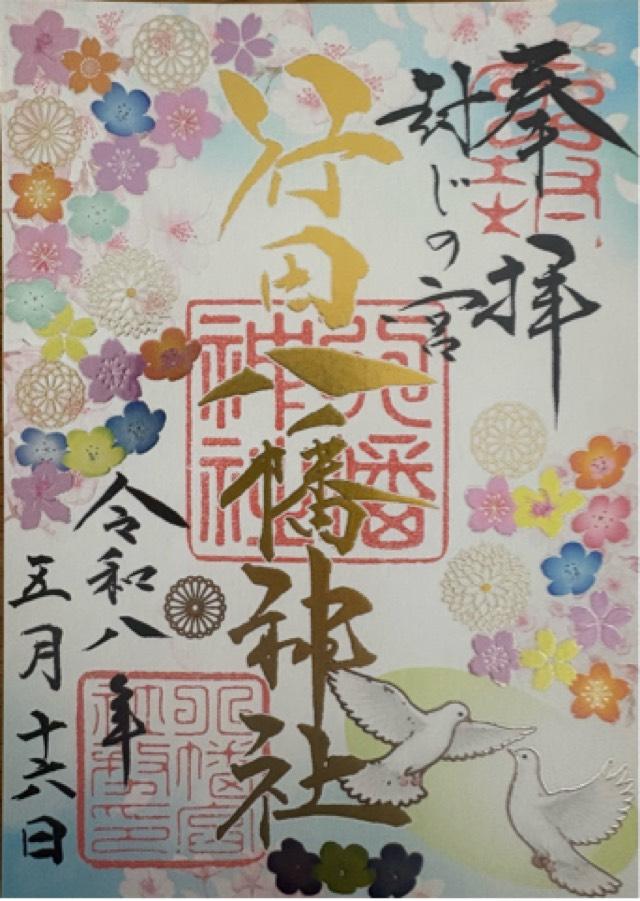 奉拝
封じの宮
行田八幡神社
八幡神社
令和八年
五月十六日